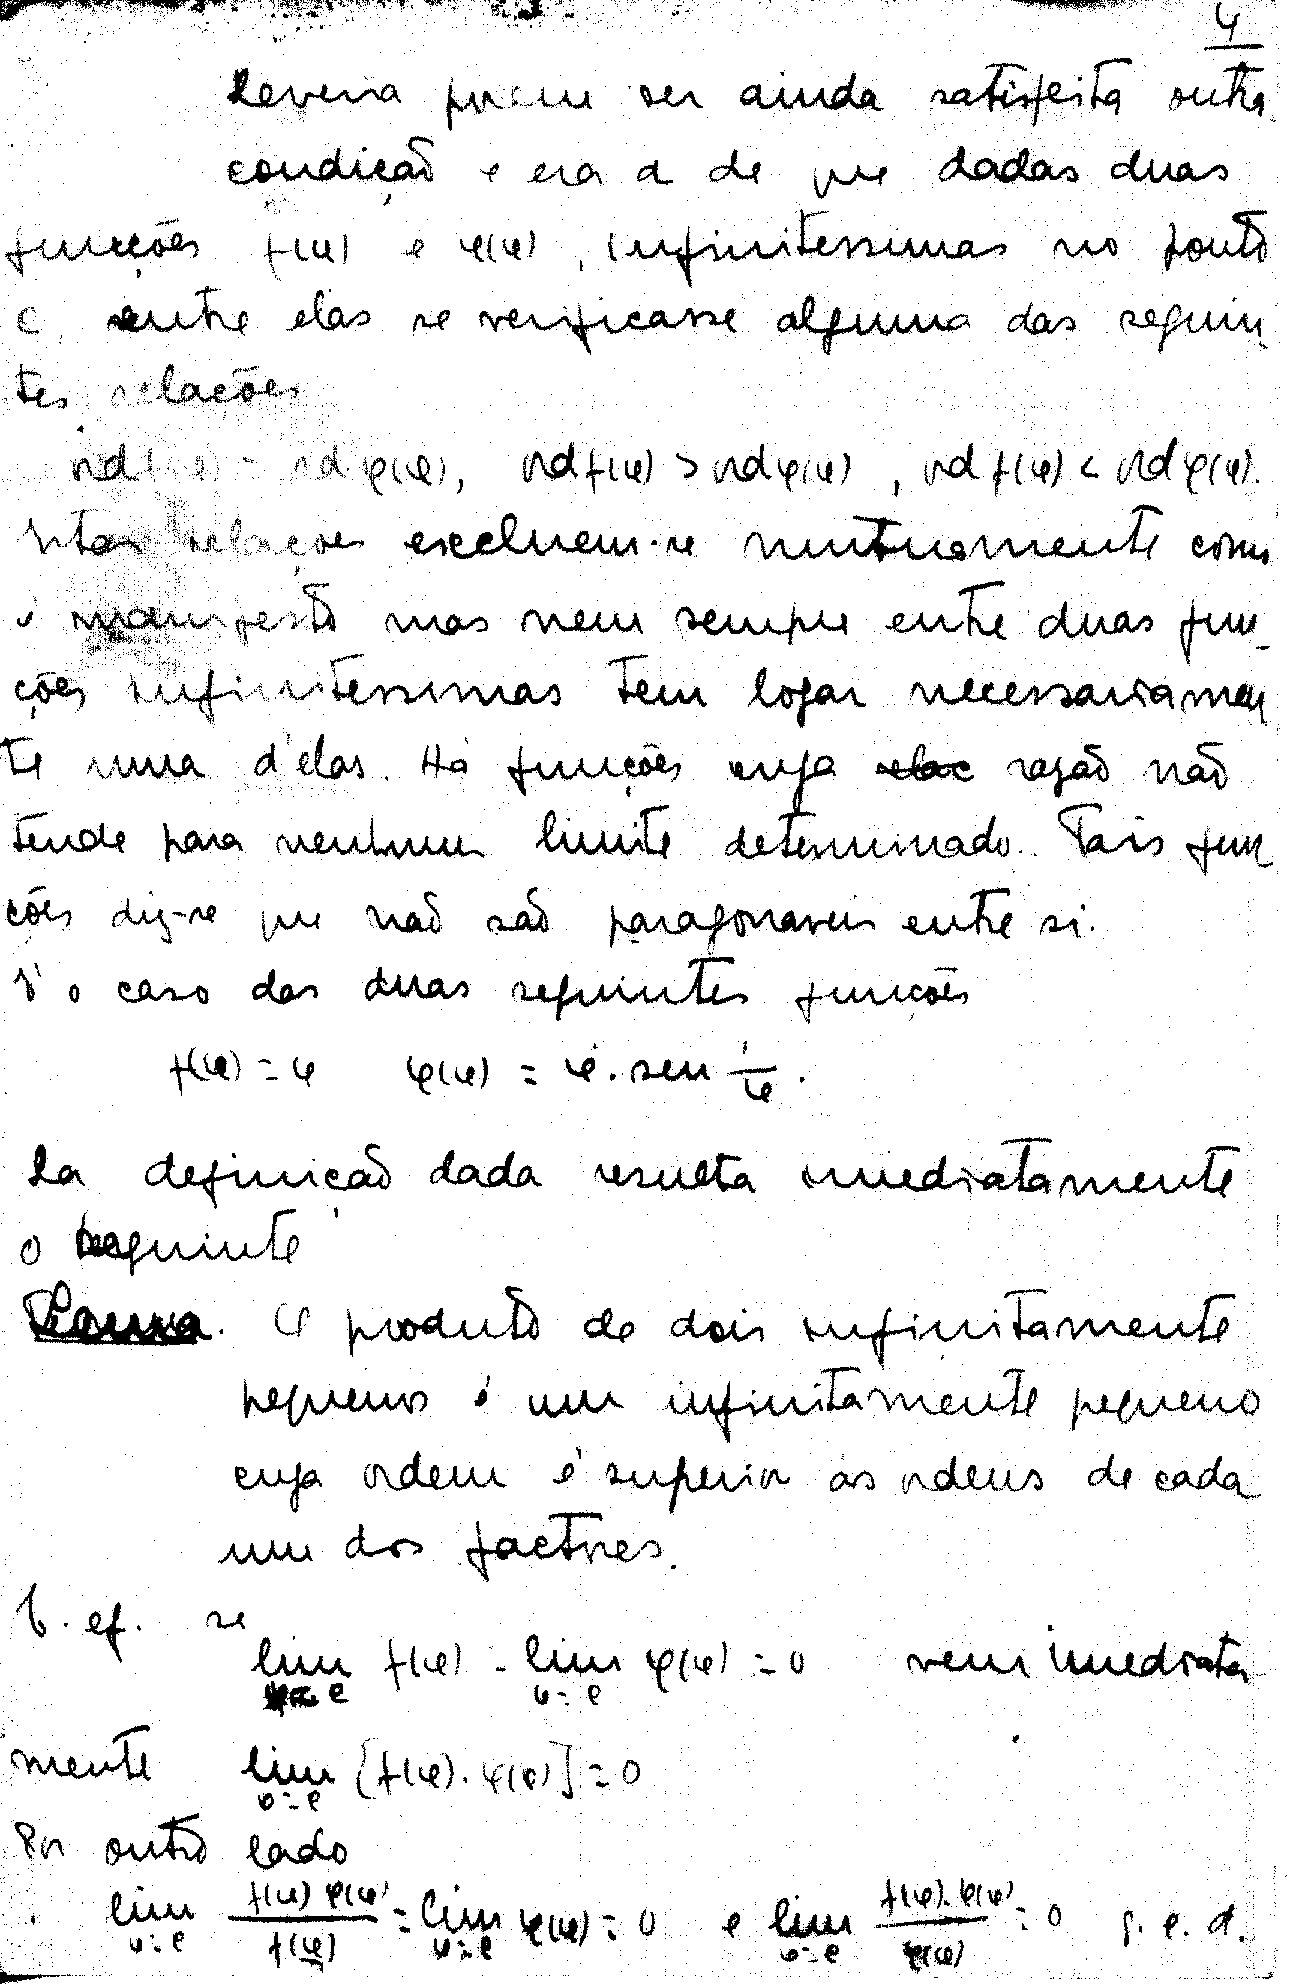 4
Deveria porem ser ainda satisfeita outra
condição e era a de que dadas duas
funcções f(φ) e φ(φ), infinitessimas no ponto
c, entre elas se verificasse alguma das seguin
tes relações
ord f(φ) = ord φ(φ), ord f(φ) > ord φ(φ), ord f(φ) < ord φ(φ).
Estas relações excluem-se mutuamente como
é manifesto mas nem sempre entre duas fun-
ções infinitessimas tem logar necessariamen
te uma d'elas. Há funções cuja relac razão não
tende para nenhum limite determinado. Tais fun
ções diz-se que não são paragonaveis entre si.
É o caso das duas seguintes funções
f(φ) = φ φ(φ) = φ . sen 1/φ .
Da definição dada resulta imediatamente
o seguinte
Lema. O produto de dois infinitamente
pequenos é um infinitamente pequeno
cuja ordem é superior ás ordens de cada
um dos factores.
E. ef. se
lim f(φ) = lim φ(φ) = 0 vem imediata
φ=c φ=c
mente lim [f(φ) . φ(φ)] = 0
φ=c
Por outro lado
lim f(φ) φ(φ)/f(φ) = lim φ(φ) = 0 e lim f(φ) . φ(φ)/φ(φ) = 0 q. e. d.
φ=c φ=c φ=c